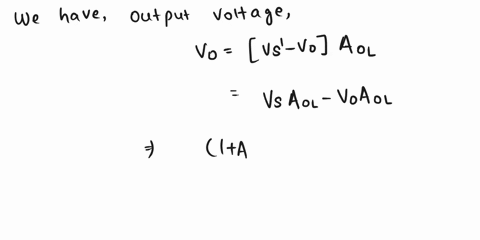 We have, output voltage,
Vo = [Vs' - Vo] AOL
= Vs AOL - VoAOL
⇒ (1+A